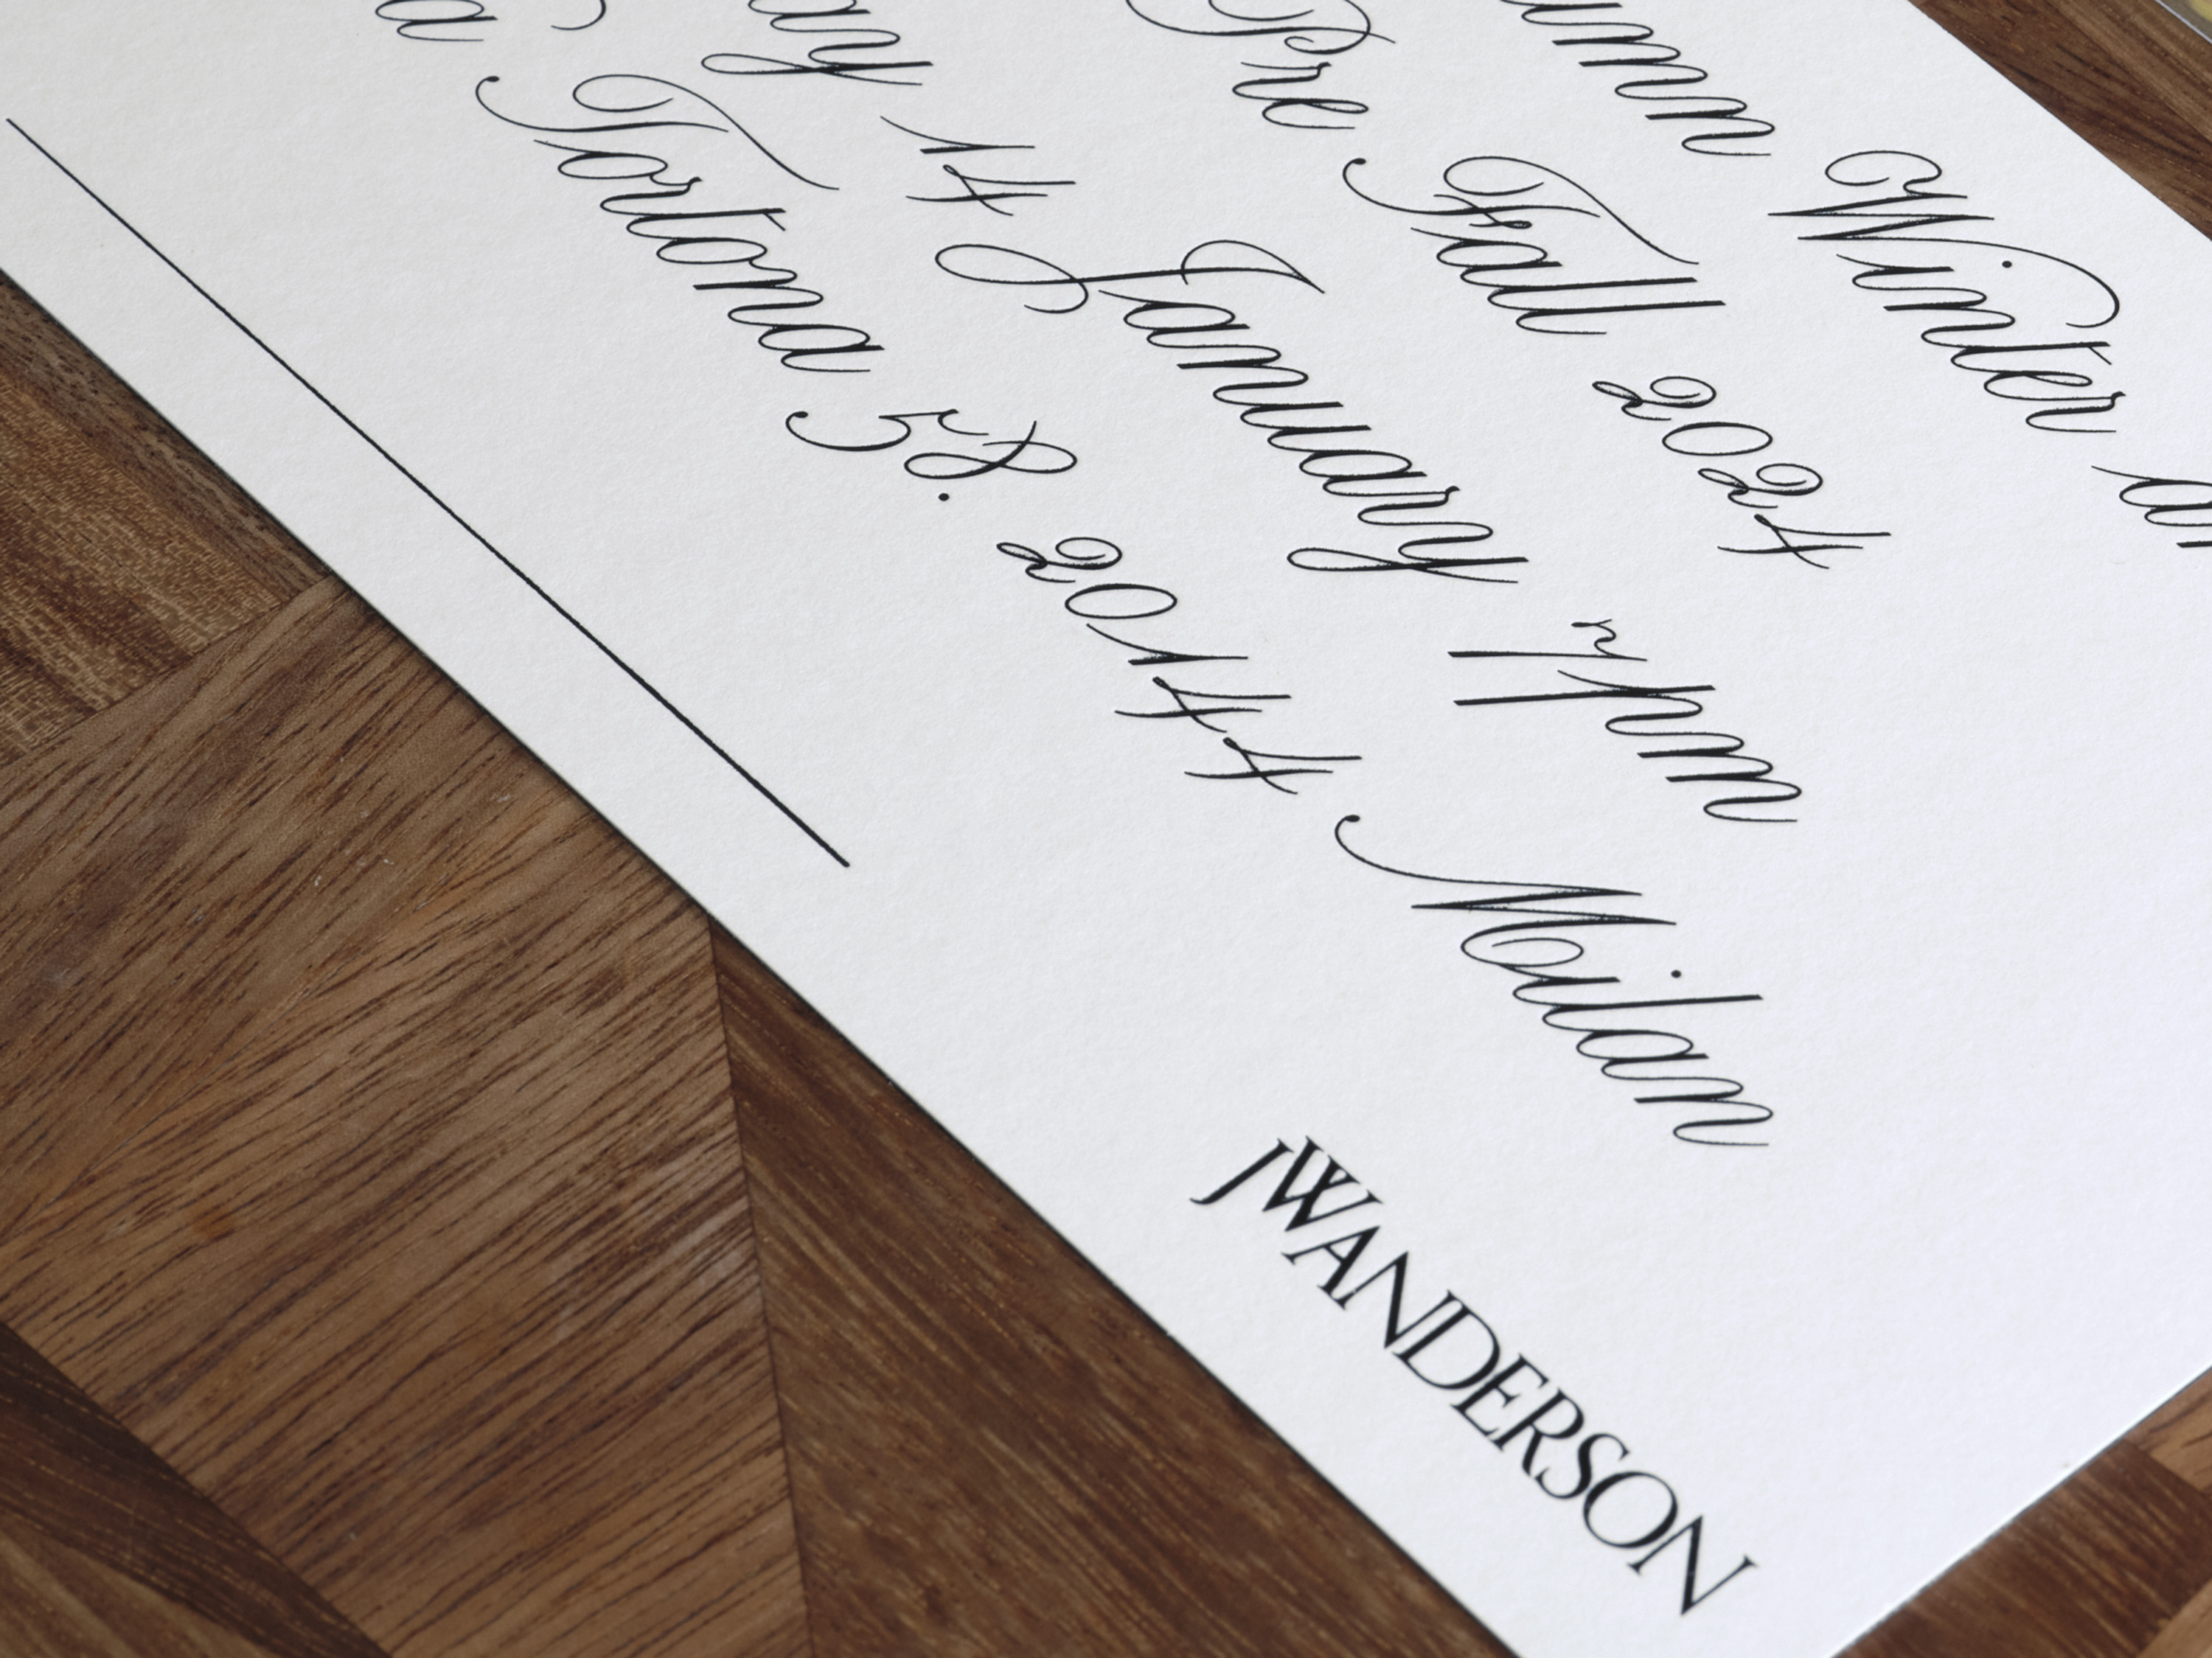 Winter
Pre Fall 2024
14 January 7pm
Tortona 58. 20144 Milan
JWANDERSON